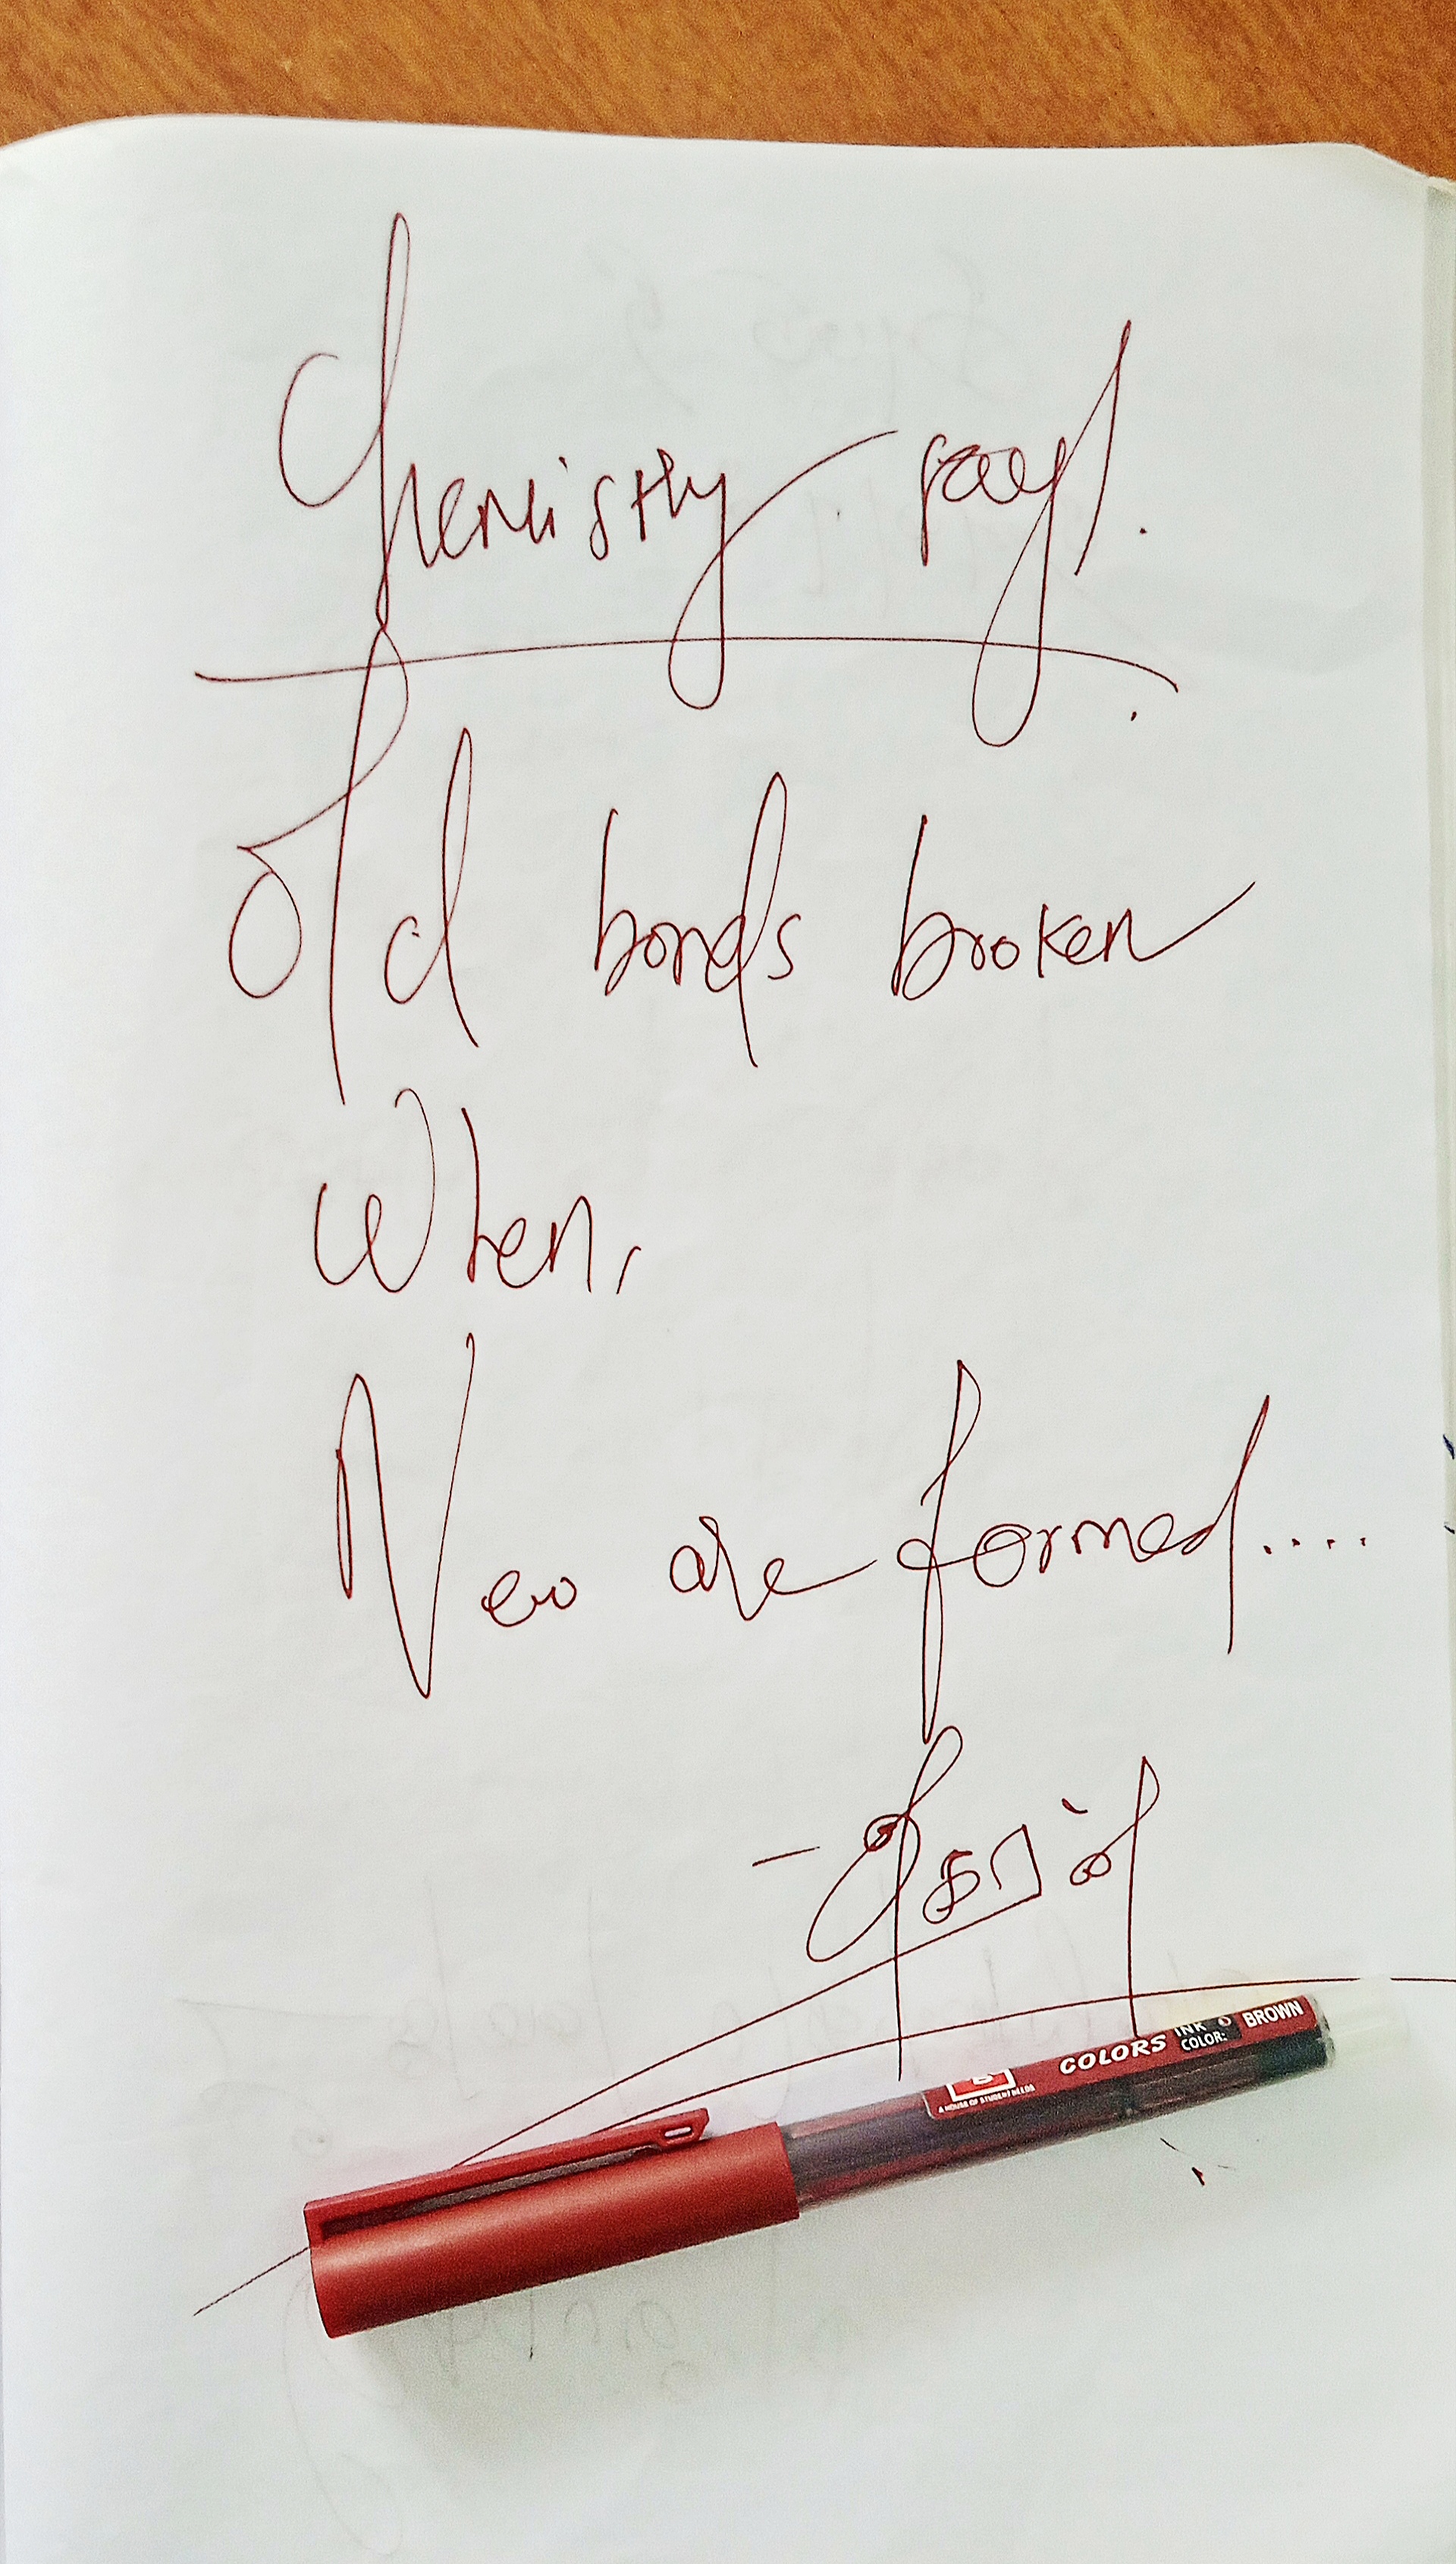 Chemistry says.
Old bonds broken
When,
New are formed....
COLORS INK COLOR: BROWN
A HOUSE OF STUDENT NEEDS